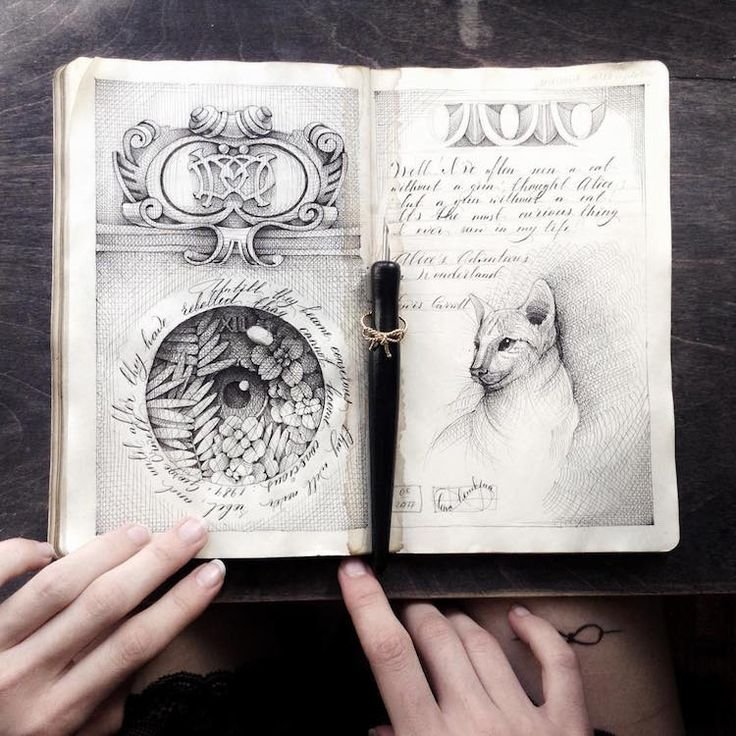 Untill they become conscious they will never rebel and untill after they have rebelled they cannot become conscious
1984. George
XII
Well! I've often seen a cat
without a grin, thought Alice,
but a grin without a cat
It's the most curious thing
I ever saw in my life
Alice's Adventures
in Wonderland
Lewis Carroll
05
2017